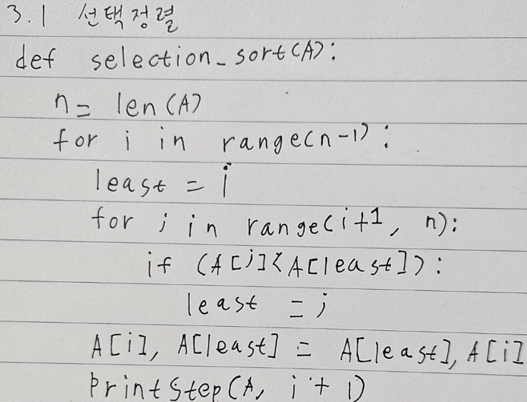 3.1 선택정렬
def selection_sort(A):
n = len(A)
for i in range(n-1):
least = i
for j in range(i+1, n):
if (A[j]<A[least]):
least = j
A[i], A[least] = A[least], A[i]
printStep(A, i+1)